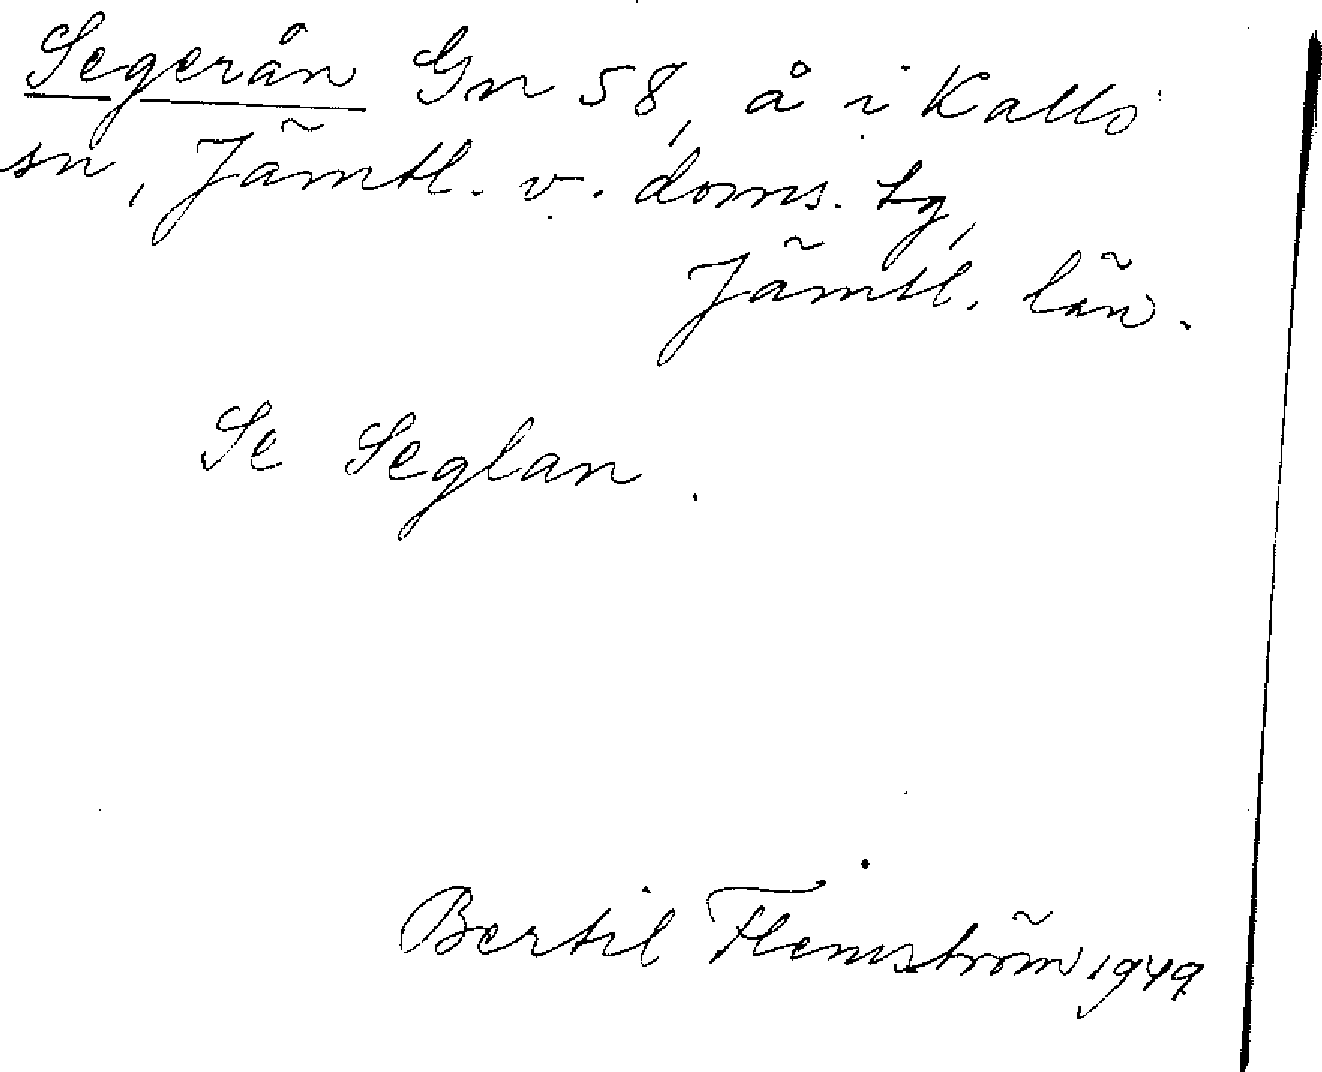 Segerån Gn 58, å i Kalls
sn, Jämtl. v. doms. tg,
Jämtl. län.
Se Seglan.
Bertil Flemström 1949